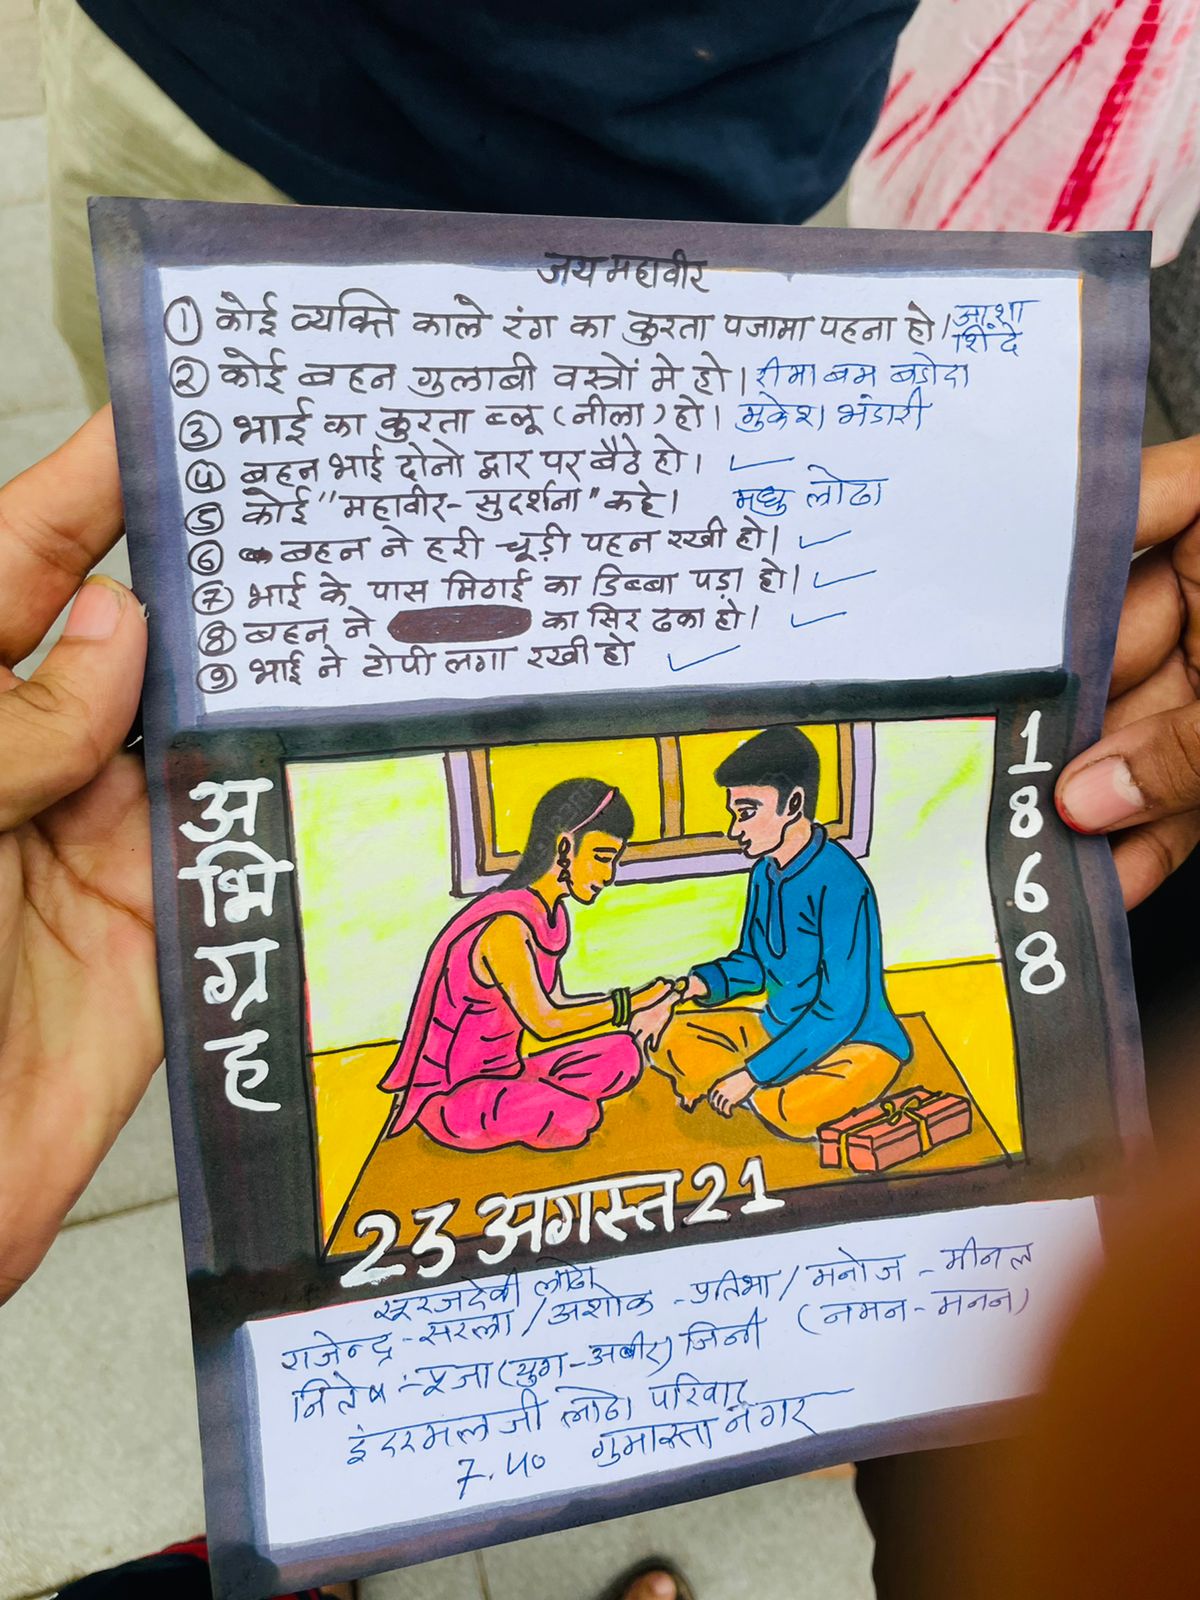 जय महावीर
① कोई व्यक्ति काले रंग का कुरता पजामा पहना हो। आशा शिंदे
② कोई बहन गुलाबी वस्त्रों मे हो। रीमा बम बडोदा
③ भाई का कुरता ब्लू (नीला) हो। मुकेश भंडारी
④ बहन भाई दोनो द्वार पर बैठे हो।
⑤ कोई "महावीर-सुदर्शना" कहे। मधु लोढा
⑥ बहन ने हरी चूड़ी पहन रखी हो।
⑦ भाई के पास मिठाई का डिब्बा पड़ा हो।
⑧ बहन ने का सिर ढका हो।
⑨ भाई ने टोपी लगा रखी हो
अभिग्रह
1868
23 अगस्त 21
सूरजदेवी लोढा
राजेन्द्र-सरला/अशोक-प्रतिभा/मनोज-मीनल
नितेष-पूजा (युग-अबीर) जिनी (नमन-मनन)
इंदरमल जी लोढा परिवार
7.50 गुमास्ता नगर